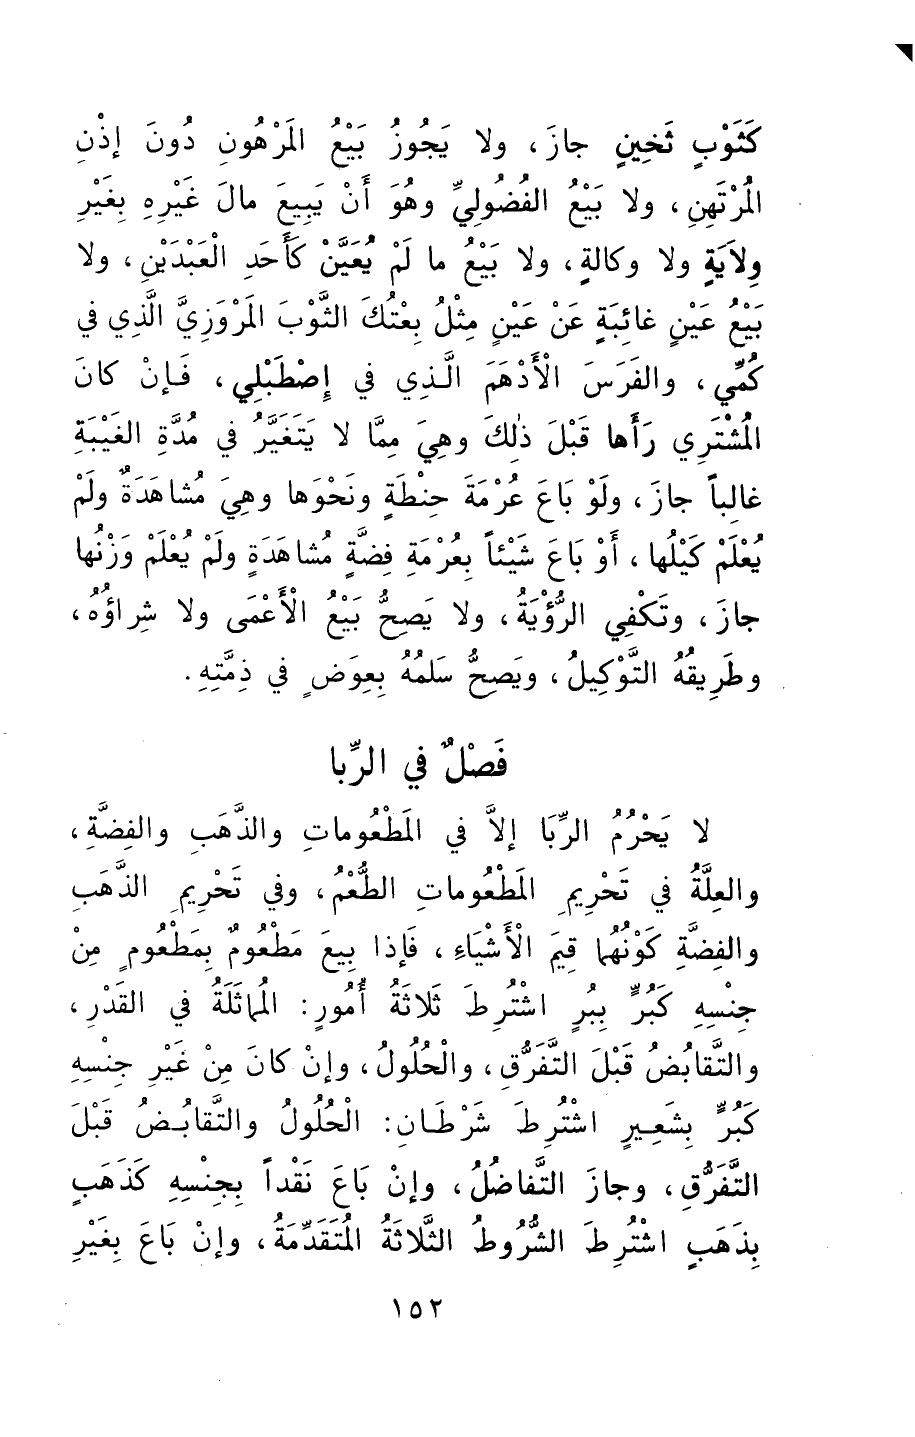 كَثَوْبٍ ثَخِينٍ جازَ، ولا يَجُوزُ بَيْعُ المَرْهُونِ دُونَ إذْنِ
المُرْتَهِنِ، ولا بَيْعُ الفُضُولِيِّ وهُوَ أَنْ يَبِيعَ مالَ غَيْرِهِ بِغَيْرِ
وِلاَيَةٍ ولا وكالةٍ، ولا بَيْعُ ما لَمْ يُعَيَّنْ كَأَحَدِ الْعَبْدَيْنِ، ولا
بَيْعُ عَيْنٍ غائِبَةٍ عَنْ عَيْنٍ مِثْلُ بِعْتُكَ الثَّوْبَ المَرْوَزِيَّ الَّذِي في
كُمِّي، والفَرَسَ الْأَدْهَمَ الَّذِي في إِصْطَبْلِي، فَإنْ كانَ
المُشْتَرِي رَأَها قَبْلَ ذٰلِكَ وهِيَ مِمَّا لا يَتَغَيَّرُ في مُدَّةِ الغَيْبَةِ
غالِباً جازَ، ولَوْ بَاعَ عُرْمَةَ حِنْطَةٍ ونَحْوَها وهِيَ مُشاهَدَةٌ ولَمْ
يُعْلَمْ كَيْلُها، أَوْ بَاعَ شَيْئاً بِعُرْمَةِ فِضَّةٍ مُشاهَدَةٍ ولَمْ يُعْلَمْ وَزْنُها
جازَ، وتَكْفِي الرُّؤْيَةُ، ولا يَصِحُّ بَيْعُ الْأَعْمَى ولا شِراؤُهُ،
وطَرِيقُهُ التَّوْكِيلُ، ويَصِحُّ سَلَمُهُ بِعِوَضٍ في ذِمَّتِهِ.
فَصْلٌ في الرِّبا
لا يَحْرُمُ الرِّبَا إلاَّ في المَطْعُوماتِ والذَّهَبِ والفِضَّةِ،
والعِلَّةُ في تَحْرِيمِ المَطْعُوماتِ الطُّعْمُ، وفي تَحْرِيمِ الذَّهَبِ
والفِضَّةِ كَوْنُهُما قِيَمَ الْأَشْيَاءِ، فَإذا بِيعَ مَطْعُومٌ بِمَطْعُومٍ مِنْ
جِنْسِهِ كَبُرٍّ بِبُرٍ اشْتُرِطَ ثَلاثَةُ أُمُورٍ: المُماثَلَةُ في القَدْرِ،
والتَّقابُضُ قَبْلَ التَّفَرُّقِ، والْحُلُولُ، وإنْ كانَ مِنْ غَيْرِ جِنْسِهِ
كَبُرٍّ بِشَعِيرٍ اشْتُرِطَ شَرْطَانِ: الْحُلُولُ والتَّقابُضُ قَبْلَ
التَّفَرُّقِ، وجازَ التَّفاضُلُ، وإنْ بَاعَ نَقْداً بِجِنْسِهِ كَذَهَبٍ
بِذَهَبٍ اشْتُرِطَ الشُّرُوطُ الثَّلاثَةُ المُتَقَدِّمَةُ، وإنْ بَاعَ بِغَيْرِ
١٥٢